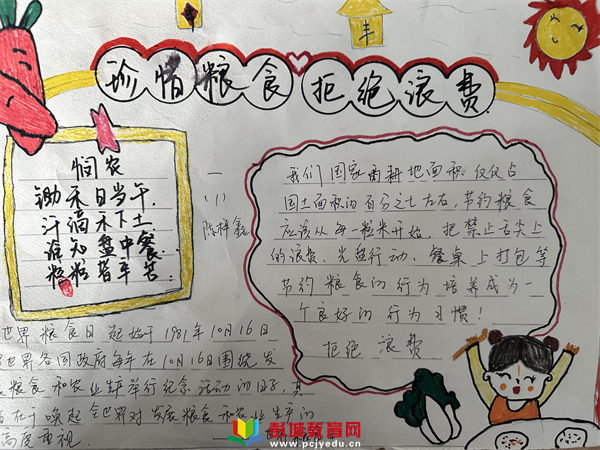 珍惜粮食 拒绝浪费
丰
悯农
锄禾日当午.
汗滴禾下土
谁知盘中餐
粒粒皆辛苦
一
(1)
我们国家的耕地面积仅仅占
国土面积的百分之七左右,节约粮食
应该从每一粒米开始,把禁止舌尖上
的浪费、光盘行动、餐桌上打包等
节约粮食的行为培养成为一
个良好的行为习惯!
拒绝浪费
世界粮食日起始于1981年10月16日
世界各国政府每年在10月16日围绕发
粮食和农业生产举行纪念活动的日子,其
在于唤起全世界对发展粮食和农业生产的
高度重视.
彭城教育网
www.pcjyedu.cn